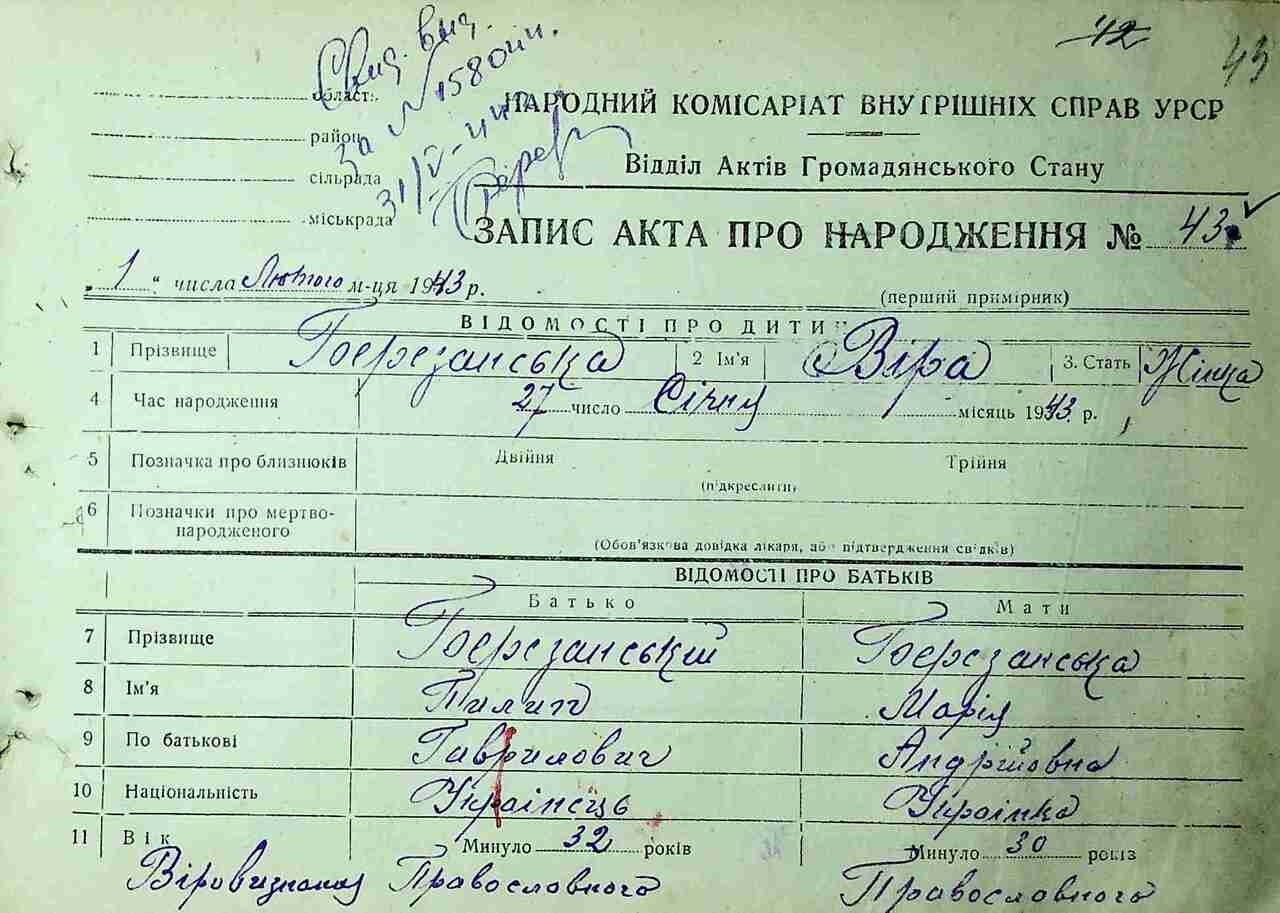 42
43
Свид. выд.
за № 1580
31/V-
област:
район
сільрада
міськрада
НАРОДНИЙ КОМІСАРІАТ ВНУТРІШНІХ СПРАВ УРСР
Відділ Актів Громадянського Стану
ЗАПИС АКТА ПРО НАРОДЖЕННЯ № 43
„ 1 “ числа Лютого м-ця 1943 р.
(перший примірник)
ВІДОМОСТІ ПРО ДИТИНУ
1 Прізвище Березанська 2 Ім'я Віра 3. Стать Жінка
4 Час народження 27 число Січня місяць 1943 р.
5 Позначка про близнюків Двійня Трійня
(підкреслити)
6 Позначки про мертво-
народженого
(Обов'язкова довідка лікаря, або підтвердження свідків)
ВІДОМОСТІ ПРО БАТЬКІВ
Батько Мати
7 Прізвище Березанський Березанська
8 Ім'я Пилип Марія
9 По батькові Гаврилович Андрійовна
10 Національність Українець Українка
11 Вік Минуло 32 років Минуло 30 років
Віровизнання Православного Православного